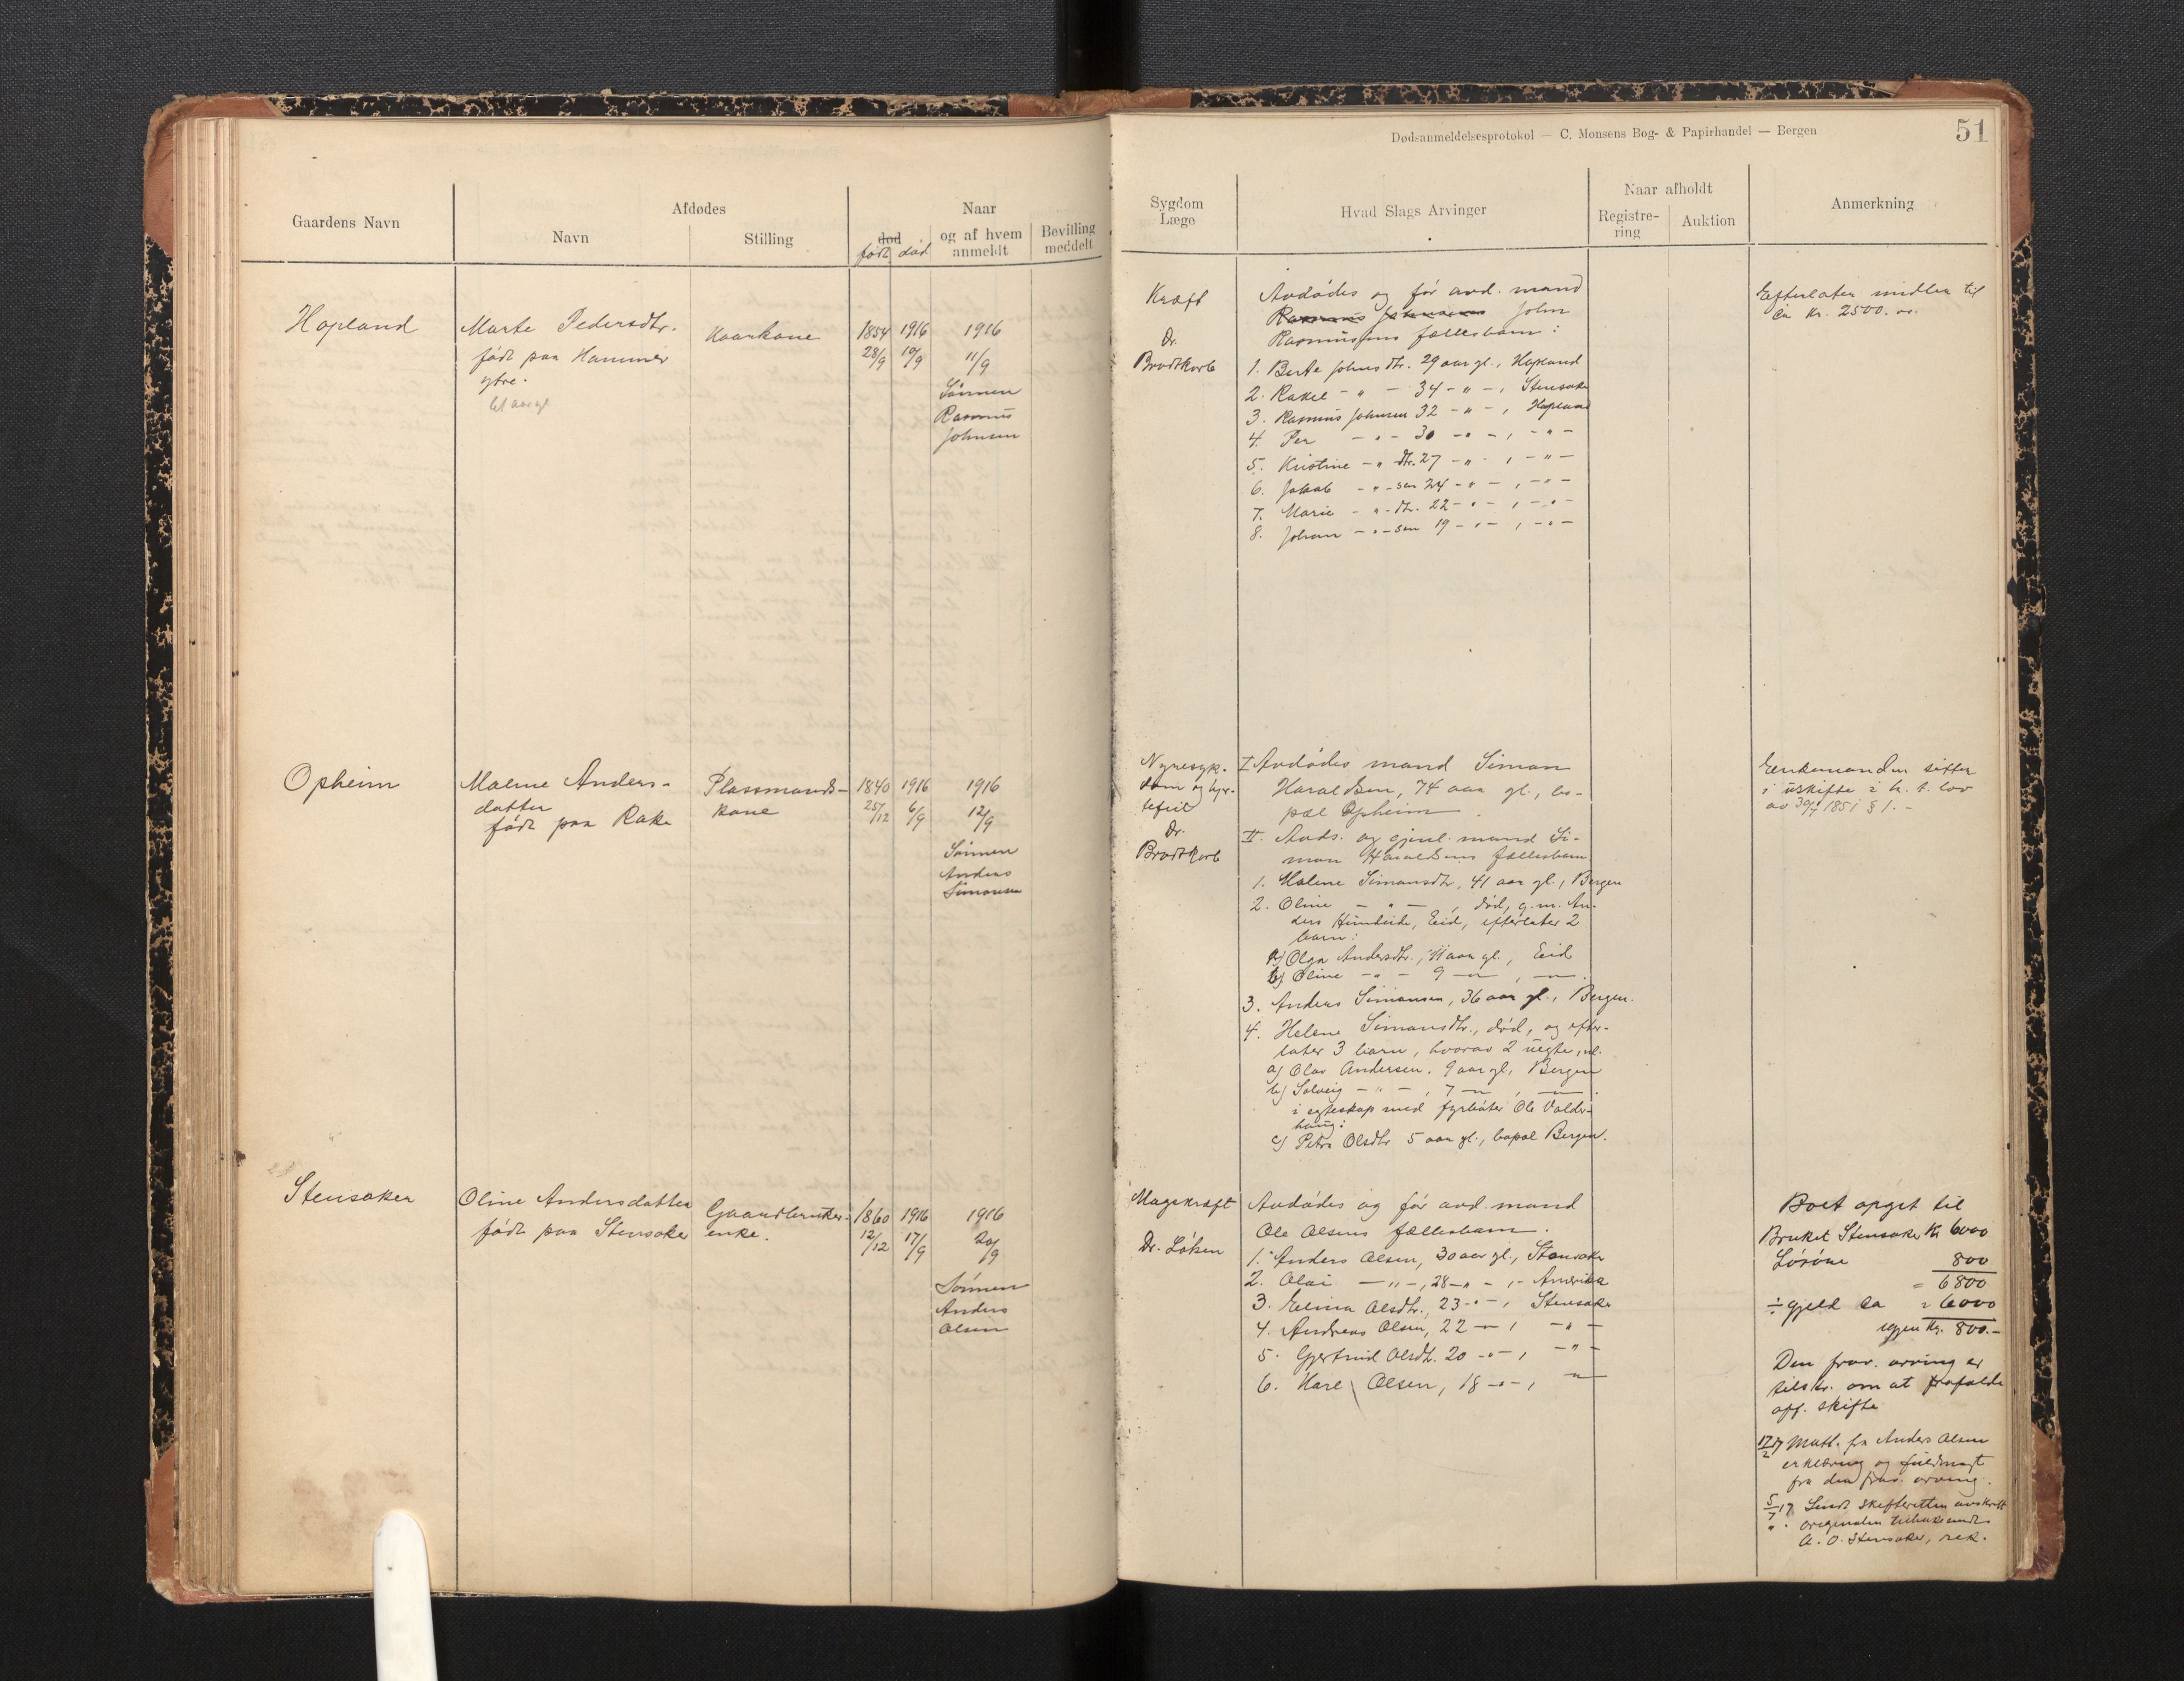 Dødsanmeldelsesprotokol — C. Monsens Bog- & Papirhandel — Bergen
51
Gaardens Navn
Afdødes
Navn
Stilling
Naar
død
født død
og af hvem
anmeldt
Bevilling
meddelt
Sygdom
Læge
Hvad Slags Arvinger
Naar afholdt
Registre-
ring
Auktion
Anmerkning
Hopland
Marte Pedersdtr.
født paa Hammer
ytre.
61 aar gl
Kaarkone
1854 1916 1916
28/9 10/9 11/9
Sønnen
Rasmus
Johnsen
Kræft
Dr.
Brodtkorb
Avdødes og før avd. mand
Rasmus Johnsens John
Rasmussens fællesbarn:
1. Berte Johnsdtr. 29 aar gl., Hopland
2. Rakel - " - 34 - " - , Stensaker
3. Rasmus Johnsen 32 - " - , Hopland
4. Per - " - 30 - " - , - " -
5. Kristine - " dtr. 27 - " - , - " -
6. Jakob - " - sen 24 - " - , - " -
7. Marie - " - dtr. 22 - " - , - " -
8. Johan - " - sen 19 - " - , - " -
Efterlater midler til
ca kr. 2500.00.
Opheim
Malene Anders-
datter
født paa Rake
Plassmands-
kone
1840 1916 1916
25/12 6/9 12/9
Sønnen
Anders
Simonsen
Nyresyk-
dom og hjer-
tefeil
Dr.
Brodtkorb
I Avdødes mand Simon
Haraldsen, 74 aar gl., bo-
pæl Opheim.
II. Avds. og gjenl. mand Si-
mon Haraldsens fællesbarn
1. Malene Simonsdtr, 41 aar gl., Bergen
2. Oline - " - , død, g.m. An-
ders Hundeide, Eid, efterlater 2
barn:
a) Olga Andersdtr., 11 aar gl, Eid
b) Oline - " - 9 - " - , - " -.
3. Anders Simonsen, 36 aar gl., Bergen.
4. Helene Simonsdtr., død, og efter-
later 3 barn, hvorav 2 uegte, nl.
a) Olav Andersen, 9 aar gl, Bergen
b) Solveig - " - , 7 - " - , - " -.
i egteskap med fyrbøter Ole Valder-
haug:
c) Petra Olsdtr 5 aar gl., bopæl Bergen.
Enkemanden sitter
i uskifte i h. t. lov
av 30/7 1851 § 1. -
Stensaker
Oline Andersdatter
født paa Stensaker
Gaardbruker-
enke.
1860 1916 1916
12/12 17/9 20/9
Sønnen
Anders
Olsen
Magekræft
Dr. Løken
Avdødes og før avd. mand
Ole Olsens fællesbarn.
1. Anders Olsen, 30 aar gl., Stensaker
2. Olai - " - , 28 - " - , - Amerika
3. Elina Olsdtr., 23 - " - , Stensaker
4. Andreas Olsen, 22 - " - , - " -
5. Gjertrud Olsdtr. 20 - " - , - " -
6. Karl Olsen, 18 - " - , "
Boet opget til
Bruket Stensaker Kr 6000
Lørøne 800
= 6800
÷ gjeld ca = 6000
igjen Kr. 800.-
Den frav. arving er
tilskr. om at frafalde
off. skifte
17/2 17 Mott. fra Anders Olsen
erklæring og fuldmagt
fra den frav. arving.
5/7 17 Sendt skifteretten avskrift
" originalen tilbakesendt
A. O. Stensaker, rek.